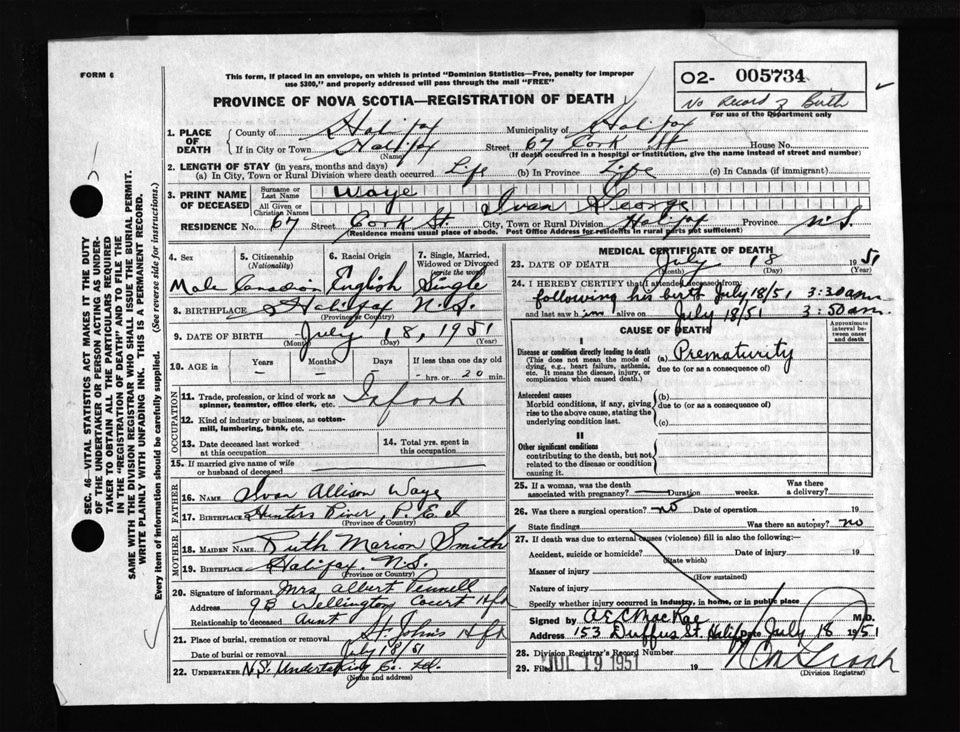 FORM 6
This form, if placed in an envelope, on which is printed "Dominion Statistics—Free, penalty for improper
use $300," and properly addressed will pass through the mail "FREE"
O2- 005734
No Record of Birth
For use of the Department only
PROVINCE OF NOVA SCOTIA—REGISTRATION OF DEATH
1. PLACE OF DEATH
County of Halifax Municipality of Halifax
If in City or Town Halifax Street 67 Cork St House No.
(Name) (If death occurred in a hospital or institution, give the name instead of street and number)
2. LENGTH OF STAY (in years, months and days)
(a) In City, Town or Rural Division where death occurred Life (b) In Province Life (c) In Canada (if immigrant)
3. PRINT NAME OF DECEASED
Surname or Last Name Waye
All Given or Christian Names Ivan George
RESIDENCE No. 67 Street Cork St City, Town or Rural Division Halifax Province N.S.
(Residence means usual place of abode. Post Office Address for residents in rural parts not sufficient)
4. Sex 5. Citizenship (Nationality) 6. Racial Origin 7. Single, Married, Widowed or Divorced (write the word)
Male Canadian English Single
8. BIRTHPLACE Halifax N.S.
(Province or Country)
9. DATE OF BIRTH July 18, 1951
(Month) (Day) (Year)
10. AGE in Years Months Days If less than one day old
- - - - hrs. or 20 min.
OCCUPATION
11. Trade, profession, or kind of work as spinner, teamster, office clerk, etc. Infant
12. Kind of industry or business, as cotton-mill, lumbering, bank, etc.
13. Date deceased last worked at this occupation
14. Total yrs. spent in this occupation
15. If married give name of wife or husband of deceased
FATHER
16. NAME Ivan Allison Waye
17. BIRTHPLACE Hunters River, P.E.I
(Province or Country)
MOTHER
18. MAIDEN NAME Ruth Marion Smith
19. BIRTHPLACE Halifax, N.S.
(Province or Country)
20. Signature of informant Mrs Albert Pennell
Address 9B Wellington Court Hfx
Relationship to deceased Aunt
21. Place of burial, cremation or removal St. John's Hfx
Date of burial or removal July 18/51
22. UNDERTAKER N.S. Undertaking Co. Ltd.
(Name and address)
MEDICAL CERTIFICATE OF DEATH
23. DATE OF DEATH July 18 1951
(Month) (Day) (Year)
24. I HEREBY CERTIFY that I attended deceased from:
following his birth July 18/51 3:30 am
and last saw him alive on July 18/51 3:50 am.
CAUSE OF DEATH
Approximate interval between onset and death
I
Disease or condition directly leading to death (a) Prematurity
(This does not mean the mode of dying, e.g., heart failure, asthenia, etc. It means the disease, injury, or complication which caused death.)
due to (or as a consequence of)
Antecedent causes (b)
Morbid conditions, if any, giving rise to the above cause, stating the underlying condition last.
due to (or as a consequence of)
(c)
II
Other significant conditions
contributing to the death, but not related to the disease or condition causing it.
25. If a woman, was the death associated with pregnancy? Duration weeks. Was there a delivery?
26. Was there a surgical operation? no Date of operation 19
State findings Was there an autopsy? no
27. If death was due to external causes (violence) fill in also the following:—
Accident, suicide or homicide? Date of injury 19
(State which)
Manner of injury
(How sustained)
Nature of injury
Specify whether injury occurred in industry, in home, or in public place
Signed by A E C MacRae M.D.
Address 153 Duffus St. Halifax Date July 18 1951
28. Division Registrar's Record Number
29. Filed JUL 19 1951 19
(Division Registrar)
SEC. 46—VITAL STATISTICS ACT MAKES IT THE DUTY
OF THE UNDERTAKER OR PERSON ACTING AS UNDER-
TAKER TO OBTAIN ALL THE PARTICULARS REQUIRED
IN THE "REGISTRATION OF DEATH" AND TO FILE THE
SAME WITH THE DIVISION REGISTRAR WHO SHALL ISSUE THE BURIAL PERMIT.
WRITE PLAINLY WITH UNFADING INK. THIS IS A PERMANENT RECORD.
Every item of information should be carefully supplied. (See reverse side for instructions.)